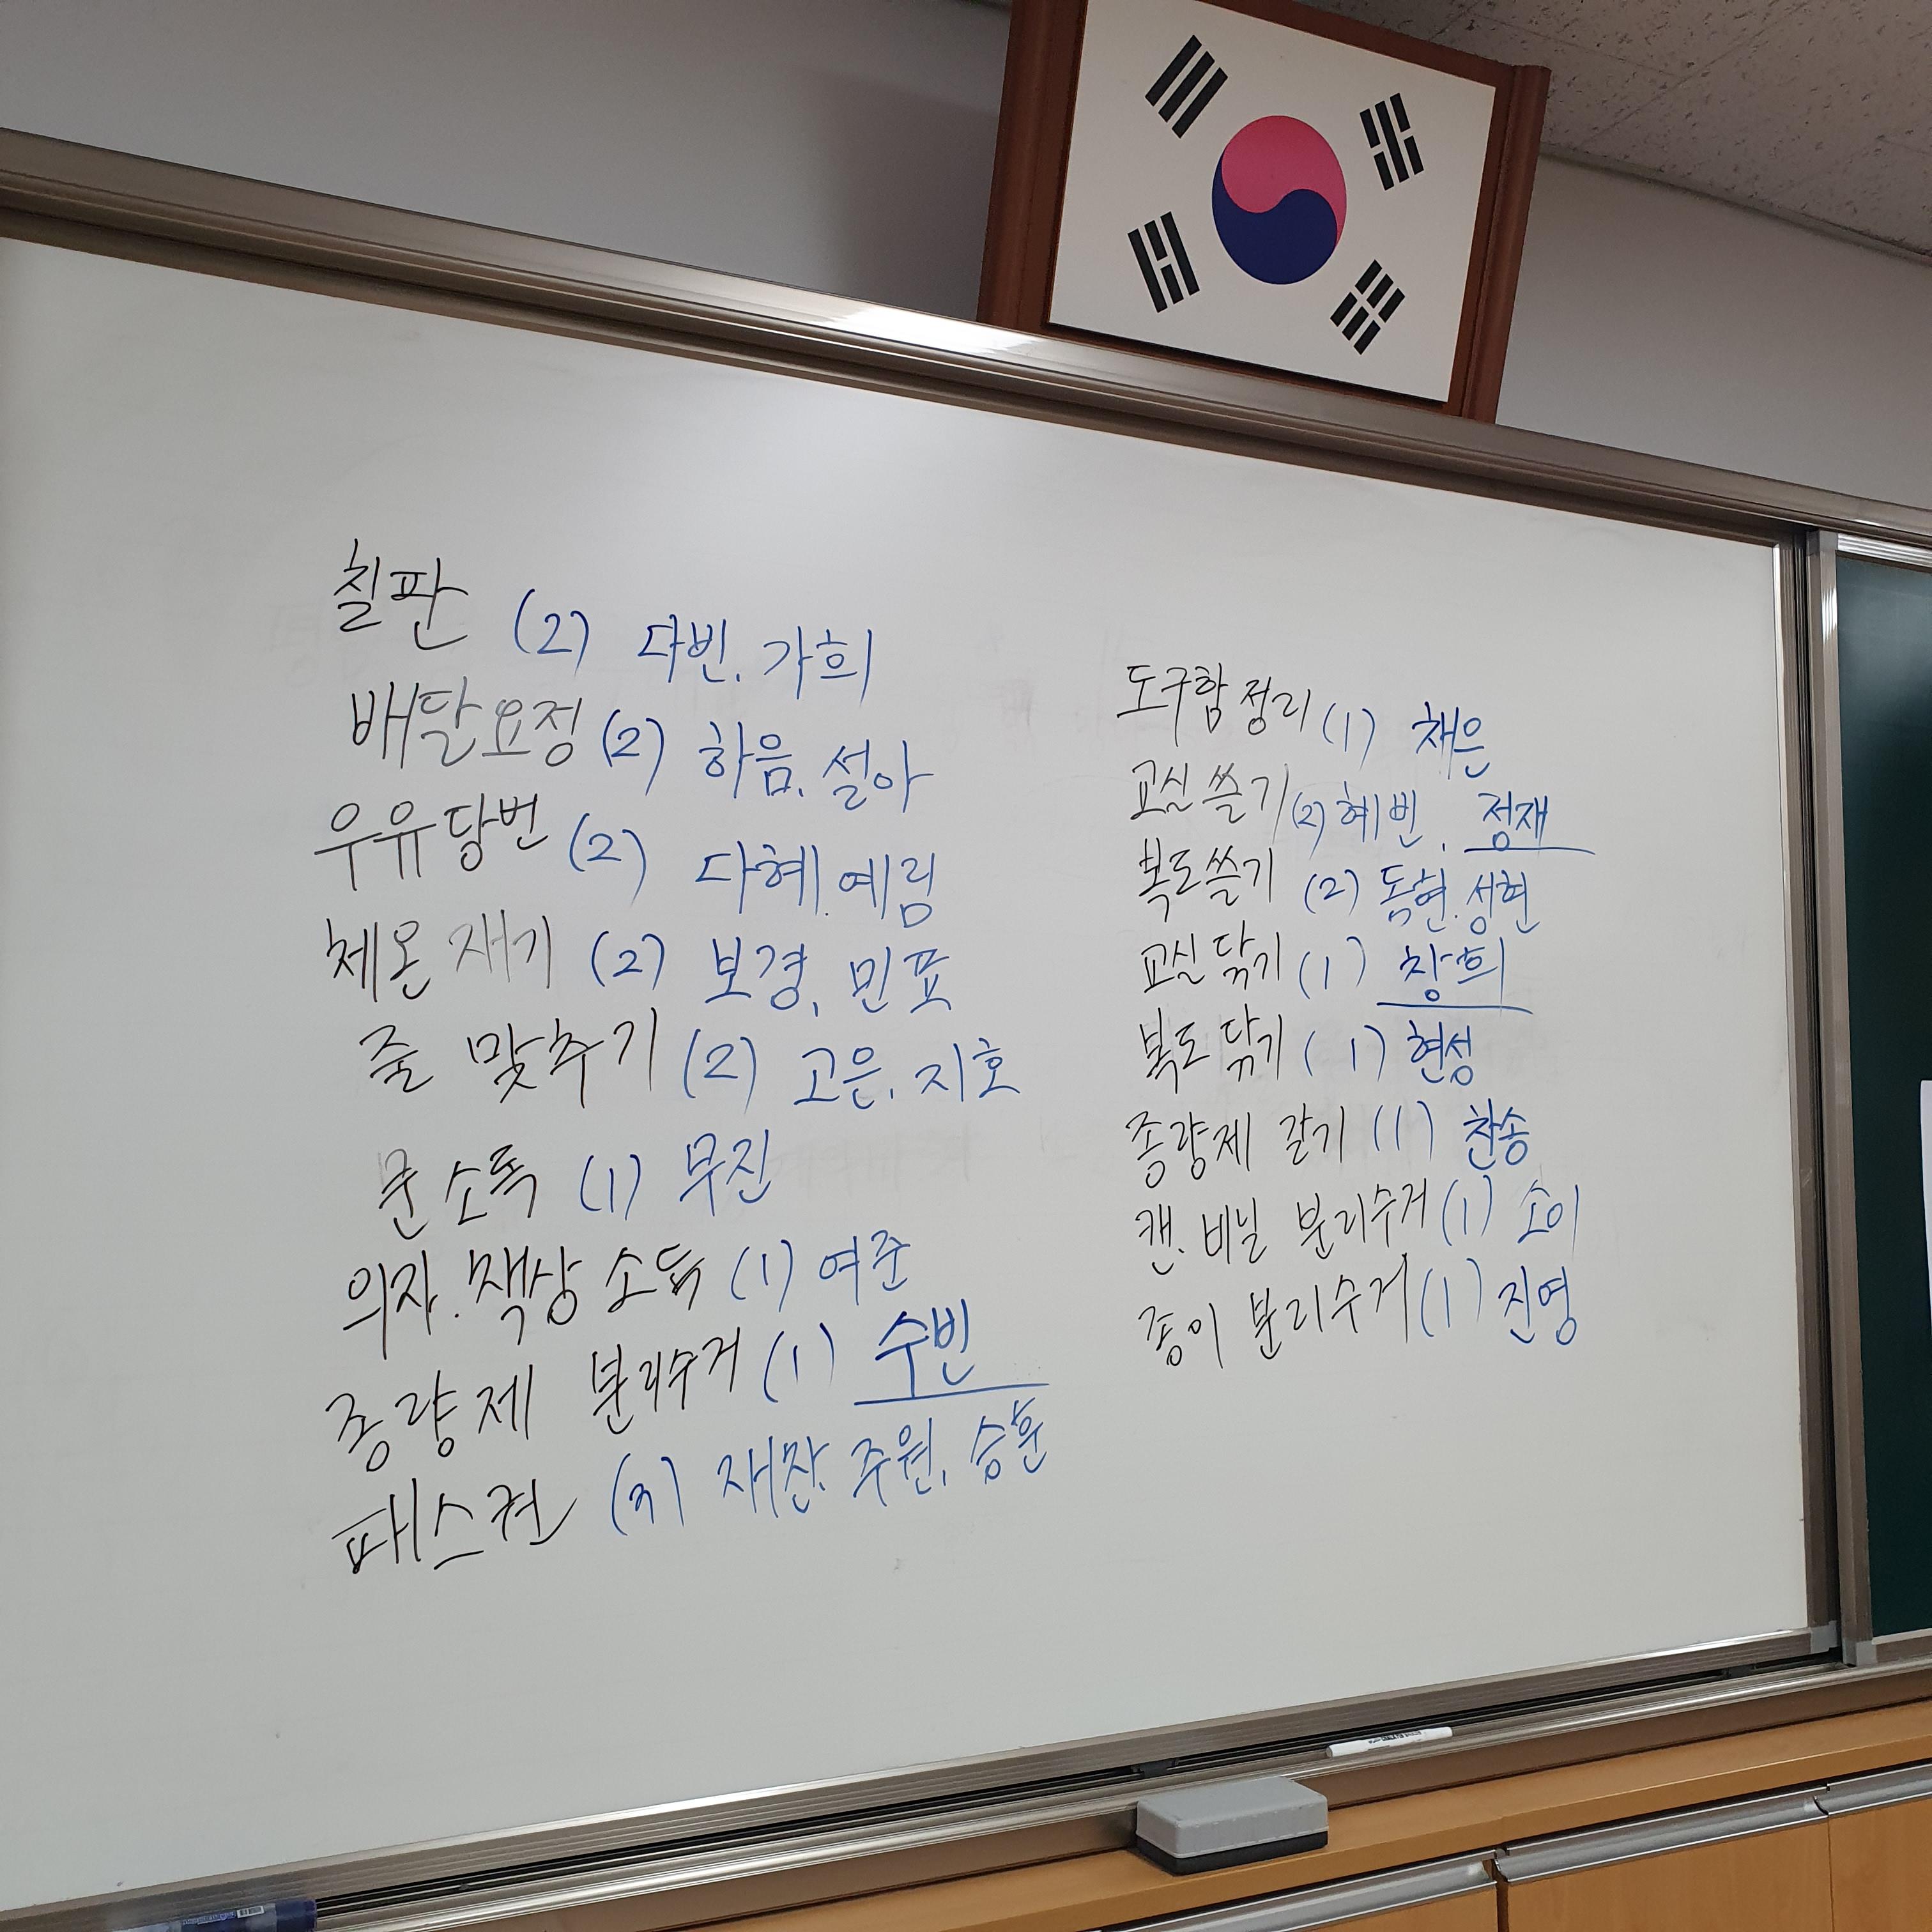 칠판 (2) 다빈, 가희
배달요정 (2) 하음, 설아
우유당번 (2) 다혜, 예림
체온 재기 (2) 보경, 민표
줄 맞추기 (2) 고은, 지호
문 소독 (1) 무진
의자, 책상 소독 (1) 여준
종량제 분리수거 (1) 수빈
패스권 (3) 재찬, 주원, 승훈
도구함 정리 (1) 채은
교실 쓸기 (2) 혜빈, 정재
복도 쓸기 (2) 동현, 성현
교실 닦기 (1) 창희
복도 닦기 (1) 현성
종량제 갈기 (1) 찬송
캔, 비닐 분리수거 (1) 소이
종이 분리수거 (1) 진영